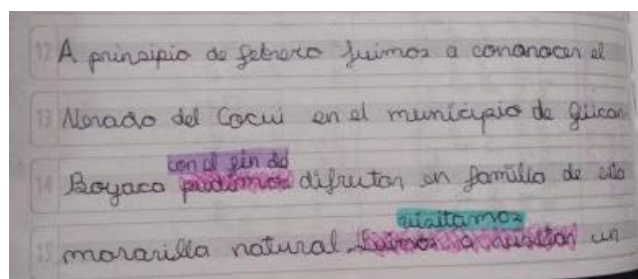 12 A principio de febrero fuimos a cononocer el
13 Nevado del Cocui en el municipio de Güican
con el fin de
14 Boyaca pudimos difrutar en familia de esta
visitamos
15 mararilla natural. Fuimos a visitar un